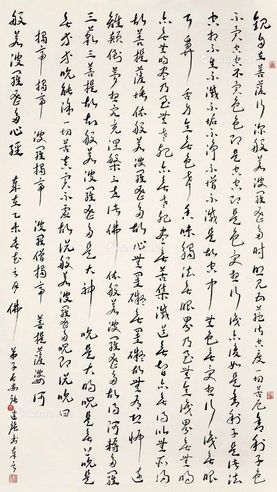 觀自在菩薩行深般若波羅蜜多時照見五蘊皆空度一切苦厄舍利子色
不異空空不異色色即是空空即是色受想行識亦復如是舍利子是諸法
空相不生不滅不垢不淨不增不減是故空中無色無受想行識無眼
耳鼻舌身意無色聲香味觸法無眼界乃至無意識界無無明
亦無無明盡乃至無老死亦無老死盡無苦集滅道無智亦無得以無所得
故菩提薩埵依般若波羅蜜多故心無罣礙無罣礙故無有恐怖遠
離顛倒夢想究竟涅槃三世諸佛依般若波羅蜜多故得阿耨多羅
三藐三菩提故知般若波羅蜜多是大神咒是大明咒是無上咒是
無等等咒能除一切苦真實不虛故說般若波羅蜜多咒即說咒曰
揭帝 揭帝 波羅揭帝 波羅僧揭帝 菩提薩婆訶
般若波羅蜜多心經 歲在乙未 佛弟子